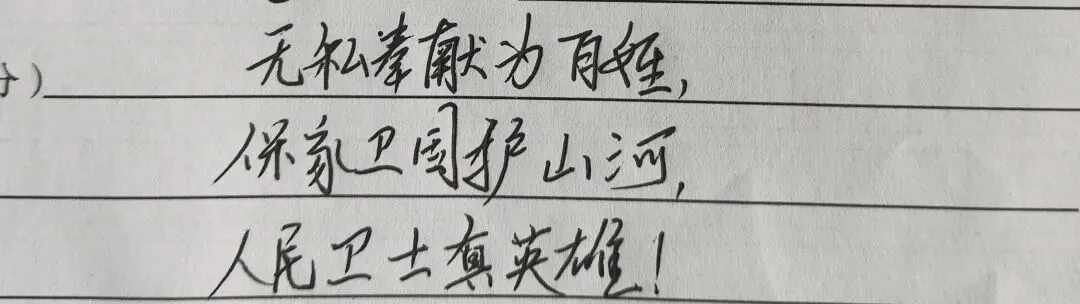 无私奉献为百姓,
分)
保家卫国护山河,
人民卫士真英雄!